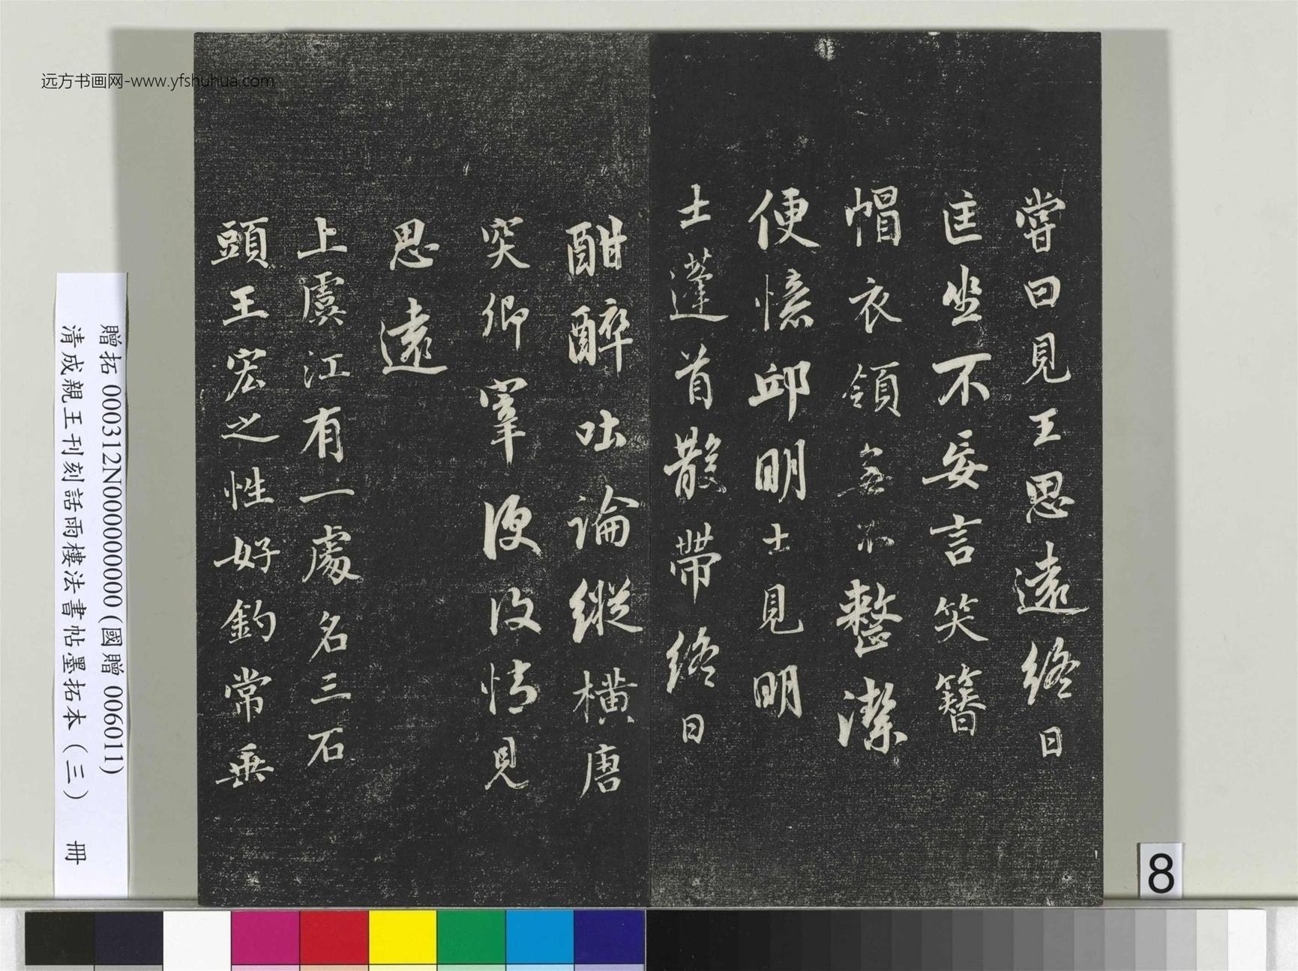 远方书画网-www.yfshuhua.com
嘗曰見王思遠終日
匡坐不妄言笑簪
帽衣領無不整潔
便憶邱明士見明
士蓬首散帶終日
酣醉吐論縱橫唐
突卿宰便復憶見
思遠
上虞江有一處名三石
頭王宏之性好釣常垂
贈拓 000312N000000000 (國贈 006011)
清成親王刊刻話雨樓法書帖墨拓本（三） 冊
8